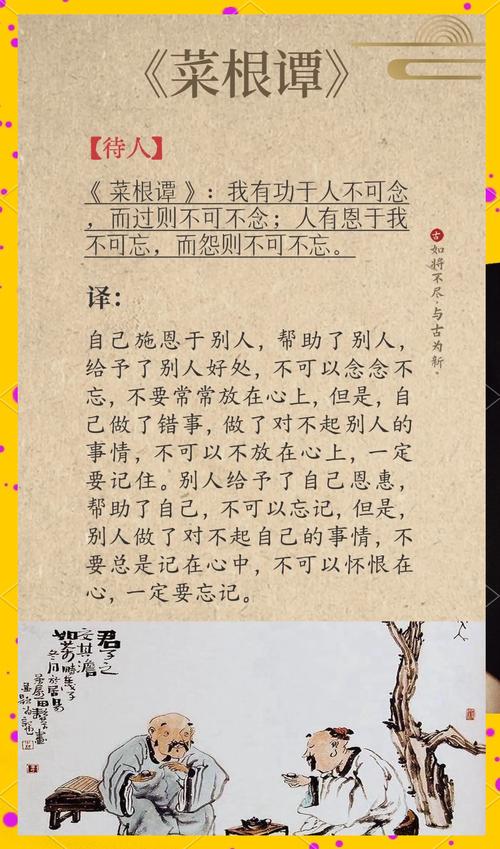 《菜根谭》
【待人】
《菜根谭》：我有功于人不可念
，而过则不可不念；人有恩于我
不可忘，而怨则不可不忘。
古
如将不尽，与古为新。
译：
自己施恩于别人，帮助了别人，
给予了别人好处，不可以念念不
忘，不要常常放在心上，但是，自
己做了错事，做了对不起别人的
事情，不可以不放在心上，一定
要记住。别人给予了自己恩惠，
帮助了自己，不可以忘记，但是，
别人做了对不起自己的事情，不
要总是记在心中，不可以怀恨在
心，一定要忘记。
君子之
交其澹
如